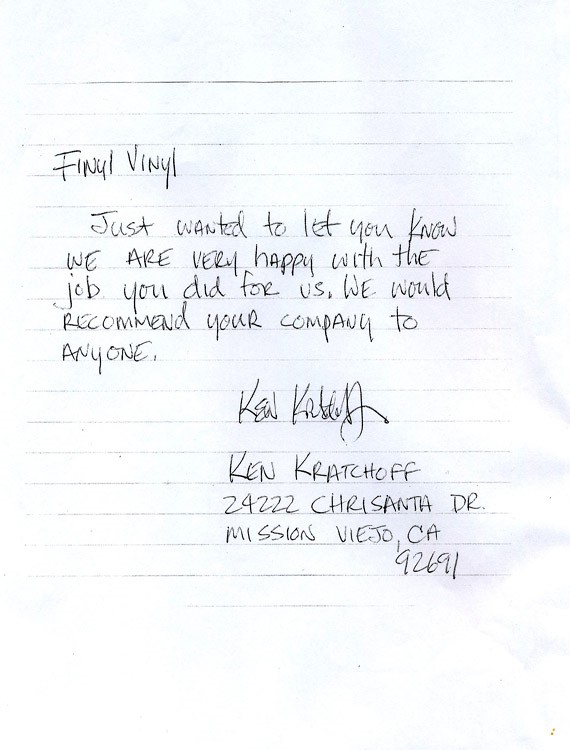 Finyl Vinyl
Just wanted to let you know
we are very happy with the
job you did for us. We would
recommend your company to
anyone.
Ken Kratchoff
Ken Kratchoff
24222 Chrisanta Dr.
Mission Viejo, CA
92691